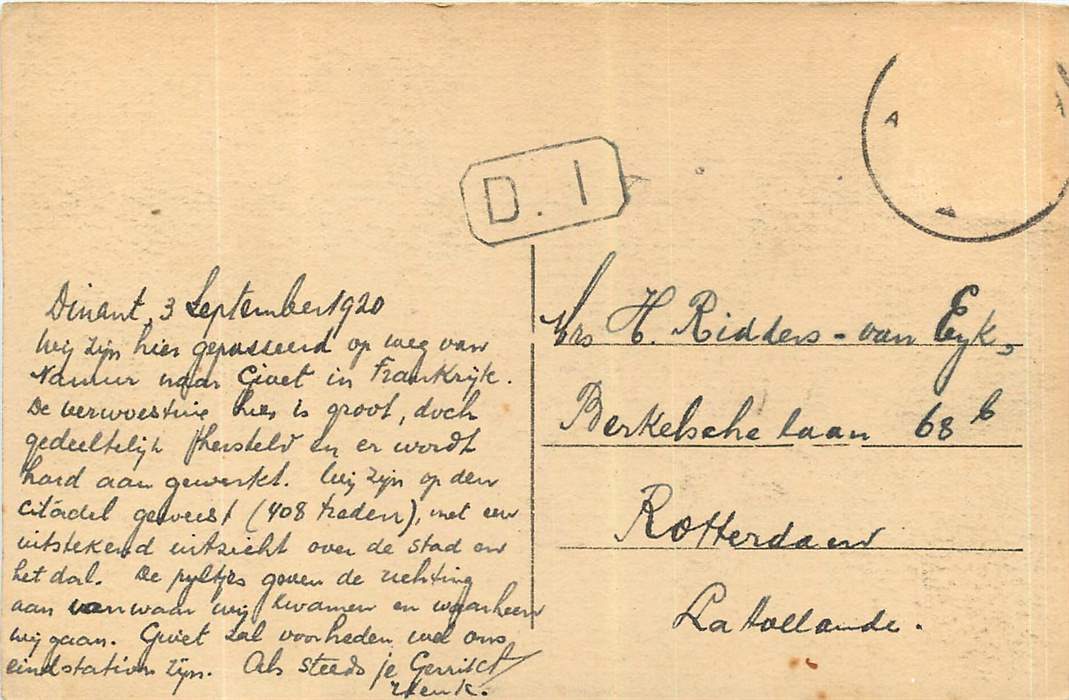 D. I
A
Dinant, 3 September 1920
Wij zijn hier gepasseerd op weg van
Namur naar Givet in Frankrijk.
De verwoesting hier is groot, doch
gedeeltelijk hersteld en er wordt
hard aan gewerkt. Wij zijn op den
citadel geweest (408 treden), met een
uitstekend uitzicht over de stad en
het dal. De pyltjes geven de richting
aan van waar wij kwamen en waarheen
wij gaan. Givet zal voorheden wel ons
eindstation zijn. Als steeds je Gerrit
Henk.
Mrs H. Ridders - van Eyk,
Berkelsche laan 68 b
Rotterdam
La Hollande.